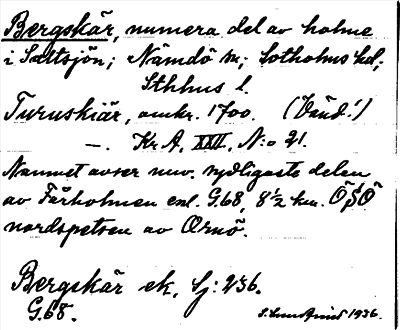 Bergskär, numera del av holme
i Saltsjön; Nämdö sn; Sotholms hd;
Sthlms l.
Turuskiär, omkr. 1700. (Vänd!)
—. Kr A, XXII, N:o 21.
Namnet avser nuv. sydligaste delen
av Fårholmen enl. G.68, 8½ km. ÖSÖ
nordspetsen av Ornö.
Bergskär ek, Sj: 236.
G.68.
1936.